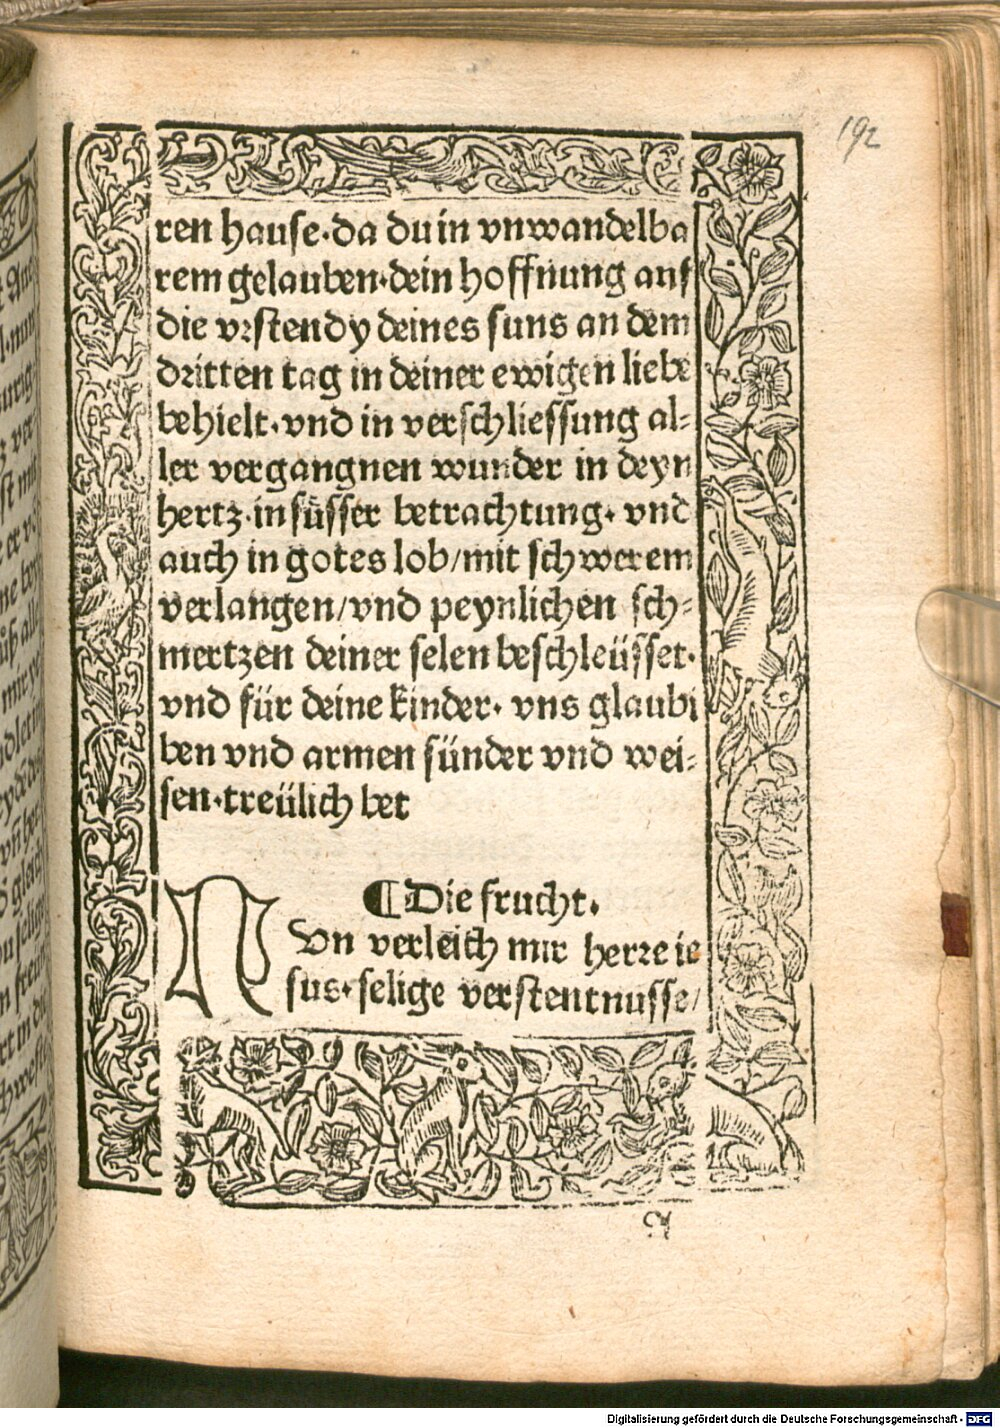 192
ren hause·da du in vnwandelba
rem gelauben·dein hoffnung auf
die vrstendy deines suns an dem
dritten tag in deiner ewigen liebe
behielt·vnd in verschliessung al⸗
ler vergangnen wunder in deyn
hertz·in süsser betrachtung· vnd
auch in gotes lob/mit schwerem
verlangen/vnd peynlichen sch⸗
mertzen deiner selen beschleüsset·
vnd für deine kinder· vns glaubi
ben vnd armen sünder vnd wei⸗
sen·treülich bet
¶Die frucht·
NVn verleich mir herre ie
sus·selige verstentnusse/
Digitalisierung gefördert durch die Deutsche Forschungsgemeinschaft - DFG